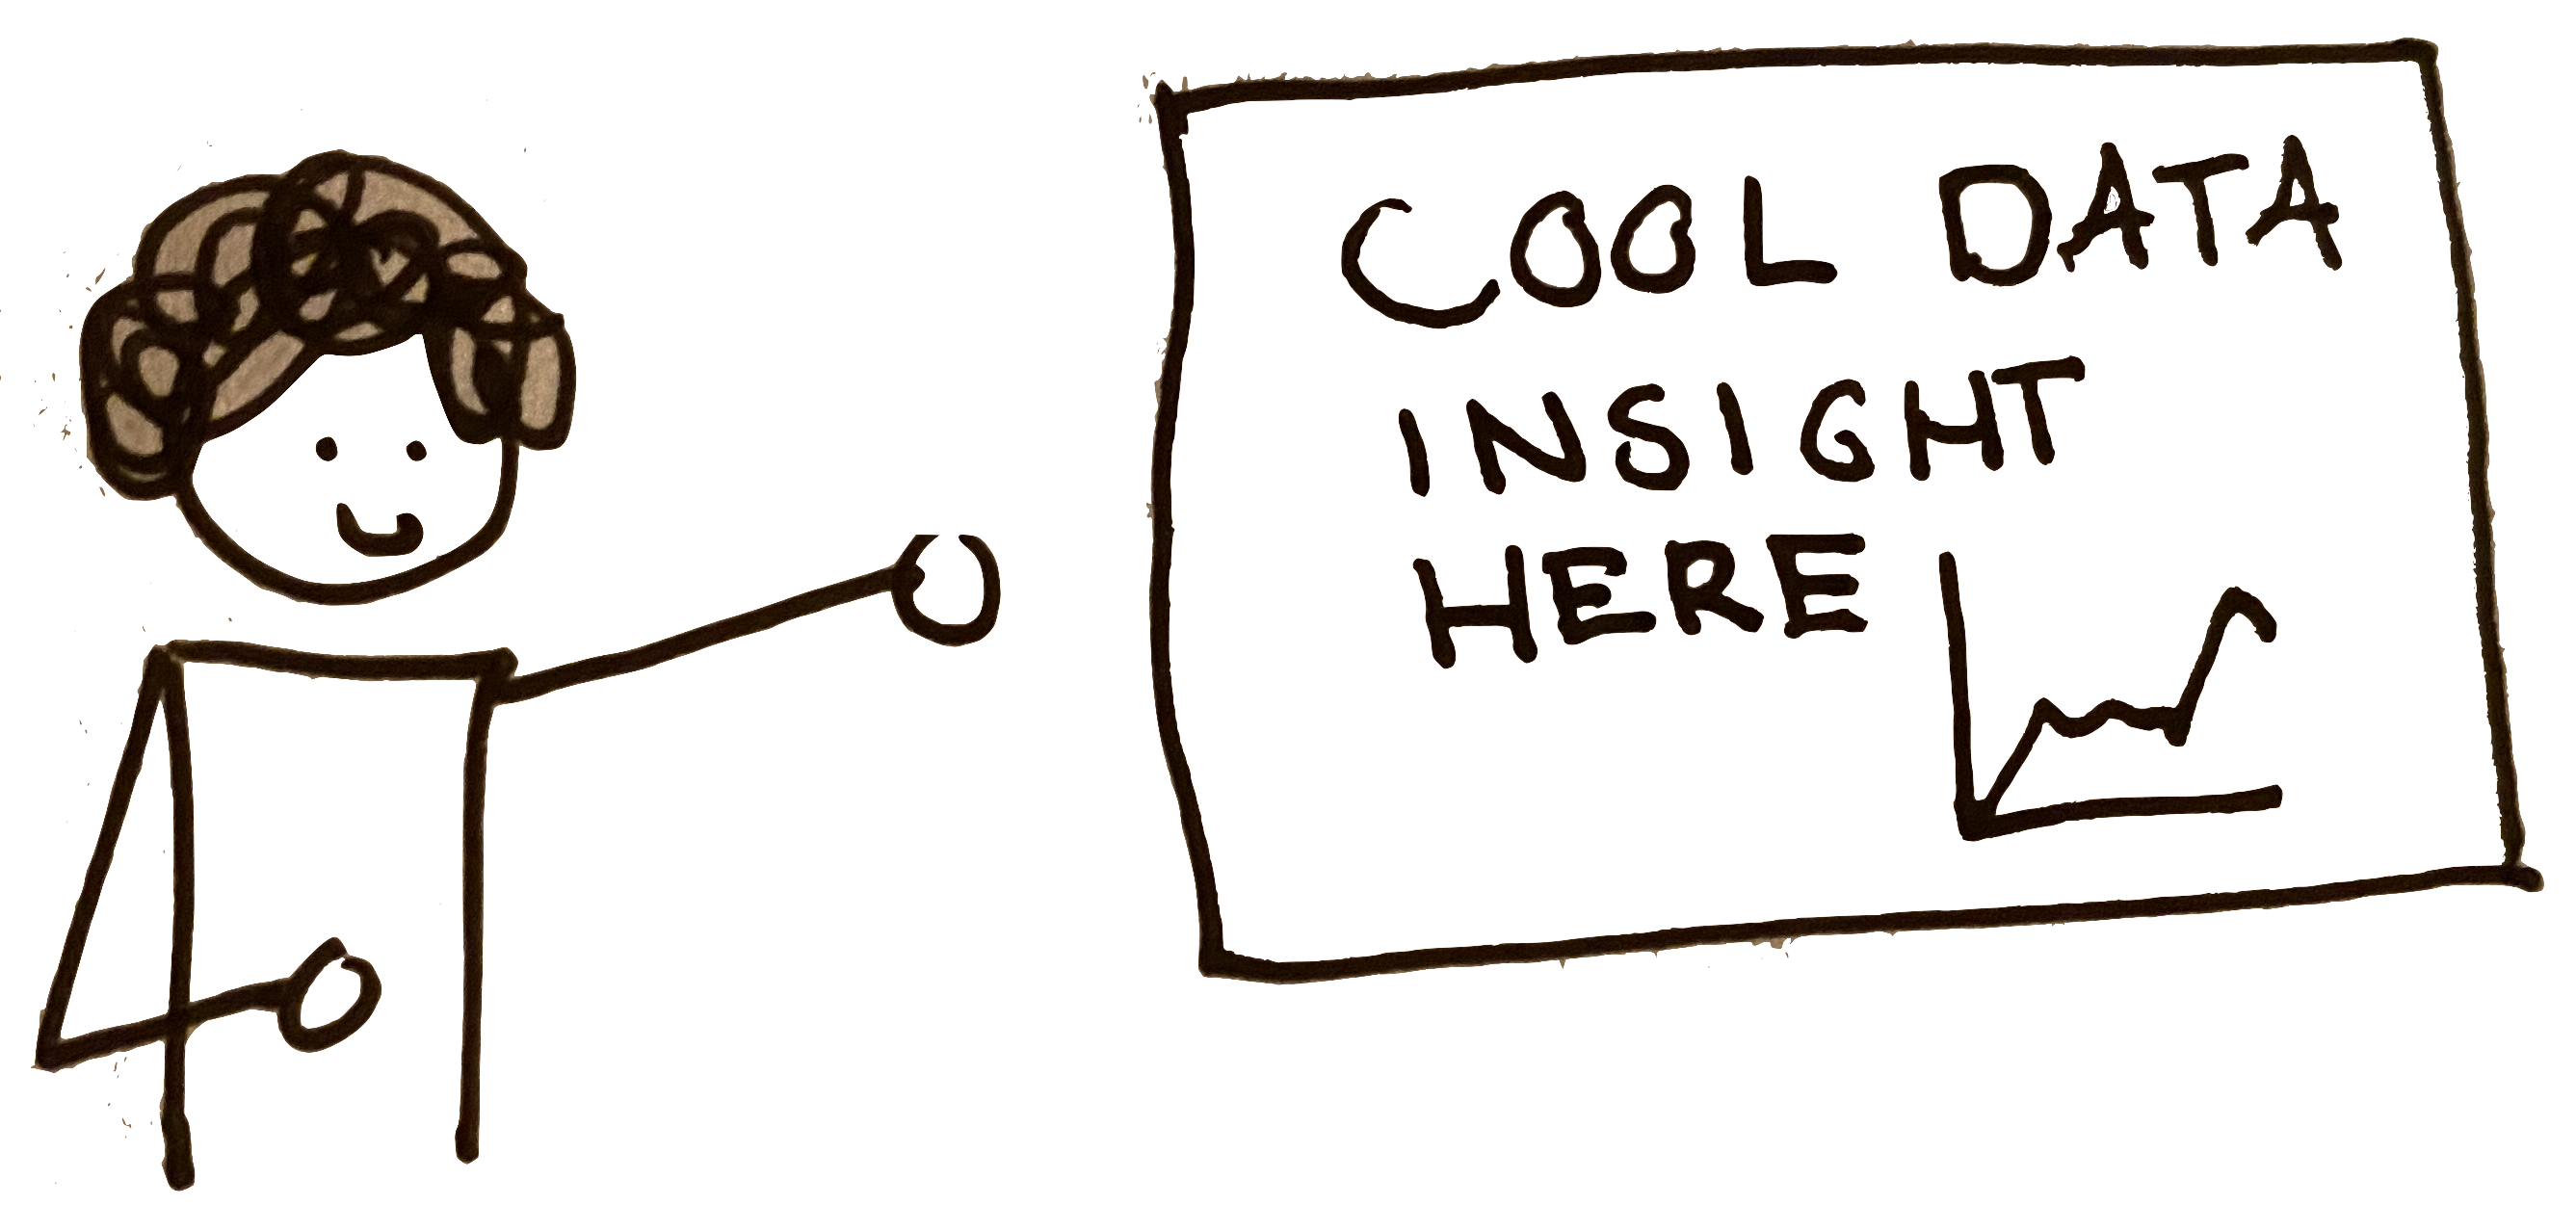 COOL DATA
INSIGHT
HERE